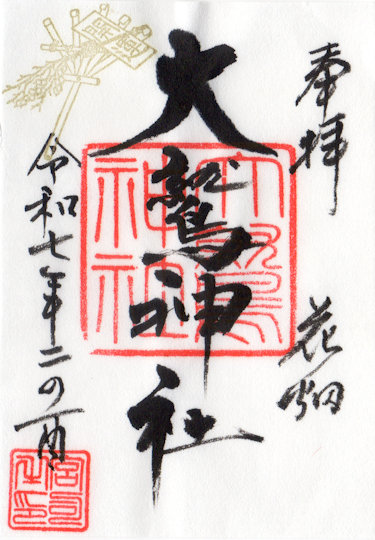 奉拝
花畑
大鷲神社
令和七年二の酉
大鷲神社